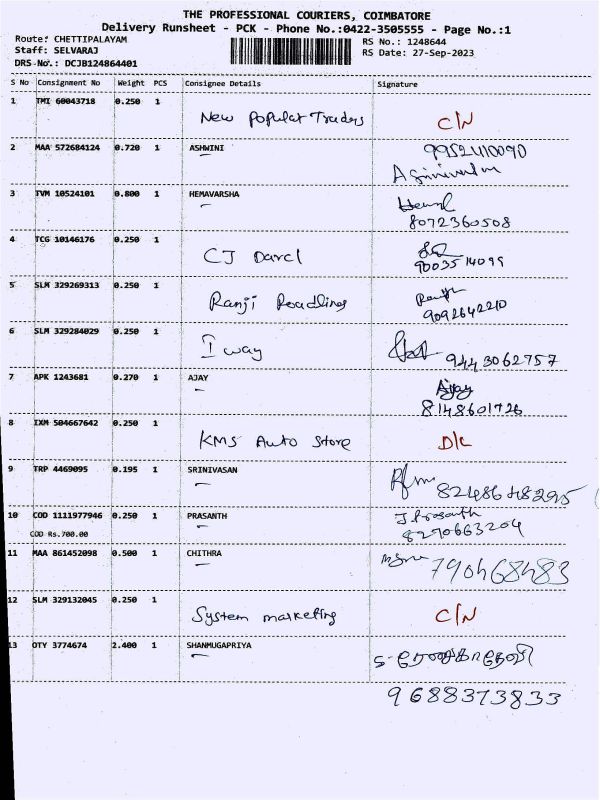 THE PROFESSIONAL COURIERS, COIMBATORE
Delivery Runsheet - PCK - Phone No.:0422-3505555 - Page No.:1
Route: CHETTIPALAYAM
RS No.: 1248644
Staff: SELVARAJ
RS Date: 27-Sep-2023
DRS No.: DCJB124864401
S No Consignment No Weight PCS Consignee Details Signature
1 TMI 60043718 0.250 1 New Popular Traders C/N
2 MAA 572684124 0.720 1 ASHWINI 9952410090
3 TVM 10524101 0.800 1 HEMAVARSHA
8072360508
4 TCG 10146176 0.250 1 CJ Darcl
9003514099
5 SLM 329269313 0.250 1 Ranji Readlines
9092642210
6 SLM 329284029 0.250 1 I way 9443062757
7 APK 1243681 0.270 1 AJAY Ajay
8148601726
8 IXM 504667642 0.250 1 KMS Auto Store D/L
9 TRP 4469095 0.195 1 SRINIVASAN
10 COD 1111977946 0.250 1 PRASANTH J. Prasanth
COD Rs.700.00 8270663204
11 MAA 861452098 0.500 1 CHITHRA
790468483
12 SLM 329132045 0.250 1 System marketing C/N
13 OTY 3774674 2.400 1 SHANMUGAPRIYA
9688373833